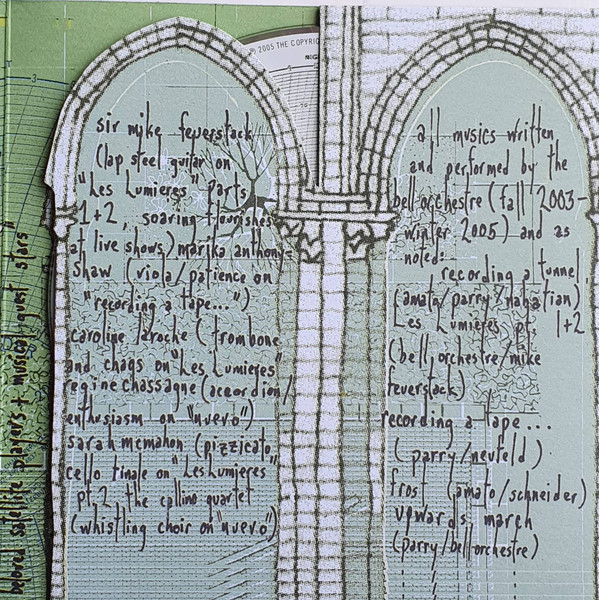 © 2005 THE COPYRIG
beloved satellite players + musical guest stars"
sir mike feuerstack
(lap steel guitar on
"Les Lumieres" parts
1+2, soaring flourishes
at live shows) marika anthony-
shaw (viola/patience on
"recording a tape...")
caroline laroche (trombone
and chaos on "Les Lumieres"
regine chassagne (accordion/
enthusiasm on "nuevo")
sarah mcmahon (pizzicato,
cello finale on "Les Lumieres"
pt. 2, the callino quartet
(whistling choir on "nuevo")
all musics written
and performed by the
bell orchestre (fall 2003-
winter 2005) and as
noted:
recording a tunnel
(amato/parry/nagatian)
Les Lumieres pt. 1+2
(bell orchestre/mike
feuerstack)
recording a tape...
(parry/neufeld)
frost (amato/schneider)
upwards march
(parry/bell orchestre)